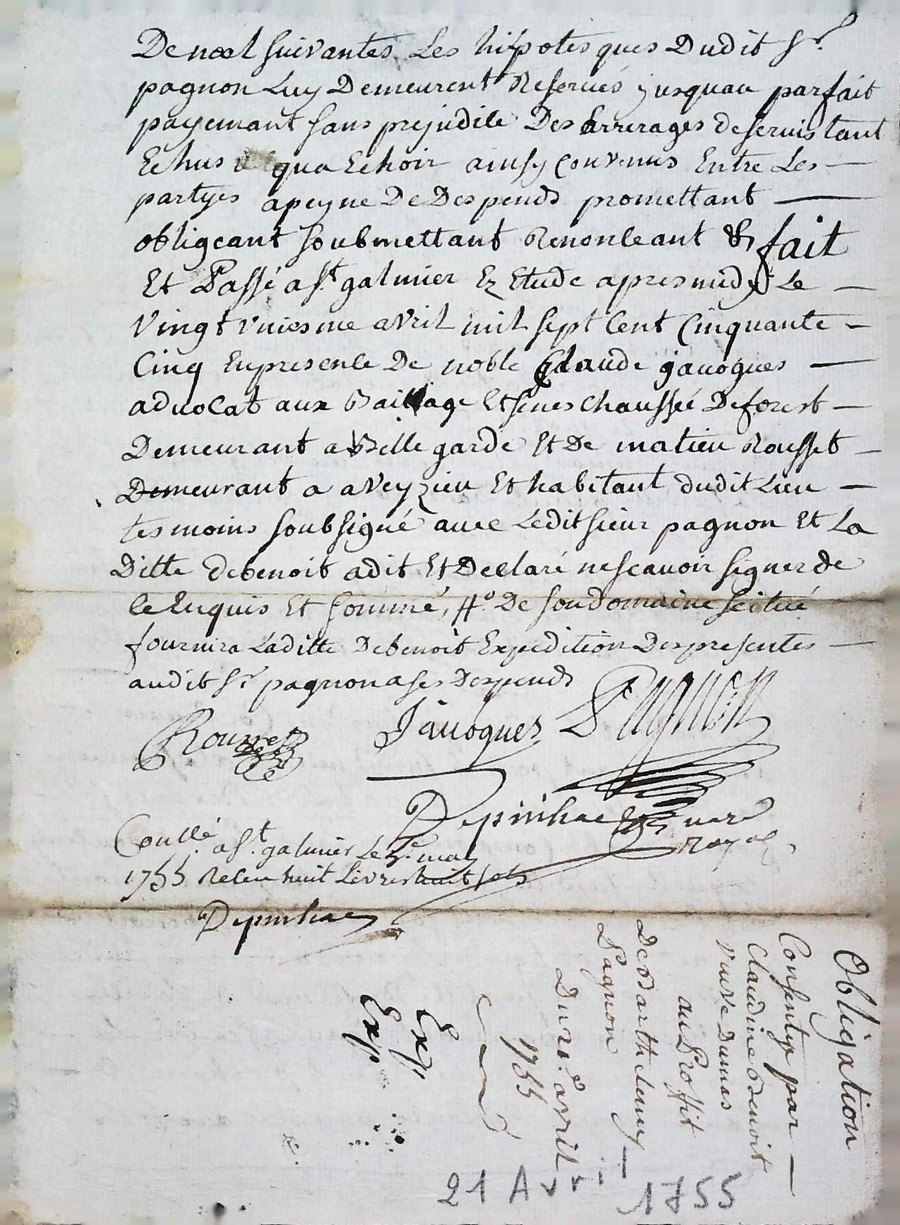 De noel suivantes Les hipotesques Dudit Sr
pagnon Luy Demeurent Reservés jusquau parfait
payemant Sans prejudice Des Arrerages deservis tant
Echus qua Echoir ainsy convenus Entre Les
partyes apeyne De Despends promettant
obligeant soubmettant Renonceant & fait
Et Passé a St galmier Ez Etude apres midy Le
vingt uniesme avril mil sept Cent Cinquante
Cinq En presence De noble Claude javogues
advocat aux Bailliage Et seneschaussée De forest
Demeurant a Bellegarde Et De matieu Rousset
Demeurant a aveyzieu Et habitant dudit Lieu
tesmoins soubsigné avec Ledit sieur pagnon Et La
Ditte debenoit a dit Et Declaré ne scavoir signer de
ce Enquis Et sommé, De son domaine scitué
fournira Laditte Debenoit Expedition Des presentes
audit Sr pagnon a ses Despends
Rousset Javogues Pagnon
Depinhac
Royal
Conllé a St galmier Le 5e may
1755 Receu huit Livres huit sols
Depinhac
Obligation
Consentye par
Claudine Benoit
veuve Dumas
au Proffit
De Barthelemy
Pagnon
Du avril
1755
Exp
Exp
21 Avril 1755